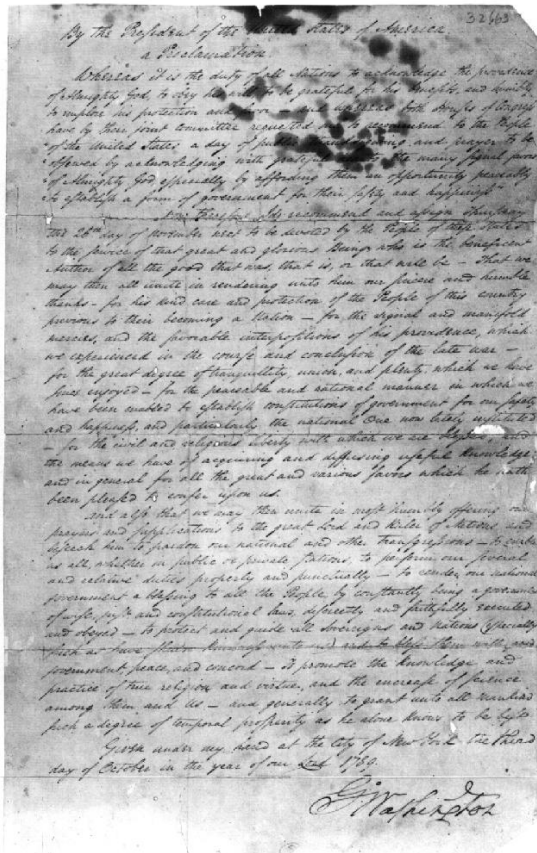 32663
By the President of the United States of America
a Proclamation
Whereas it is the duty of all Nations to acknowledge the providence
of Almighty God, to obey his will, to be grateful for his benefits, and humbly
to implore his protection and favor and whereas both Houses of Congress
have by their joint committee requested me to recommend to the People
of the United States a day of public thanksgiving and prayer to be
observed by acknowledging with grateful hearts the many signal favors
of Almighty God especially by affording them an opportunity peaceably
to establish a form of government for their safety and happiness
Now therefore I do recommend and assign Thursday
the 26th day of November next to be devoted by the People of these States
to the service of that great and glorious Being, who is the beneficent
Author of all the good that was, that is, or that will be — That we
may then all unite in rendering unto him our sincere and humble
thanks — for his kind care and protection of the People of this country
previous to their becoming a Nation — for the signal and manifold
mercies, and the favorable interpositions of his providence, which
we experienced in the course and conclusion of the late war —
for the great degree of tranquillity, union, and plenty, which we have
since enjoyed — for the peaceable and rational manner in which we
have been enabled to establish constitutions of government for our safety
and happiness, and particularly the national One now lately instituted
— for the civil and religious liberty with which we are blessed, and
the means we have of acquiring and diffusing useful knowledge
and in general for all the great and various favors which he hath
been pleased to confer upon us.
And also that we may then unite in most humbly offering our
prayers and supplications to the great Lord and Ruler of Nations, and
beseech him to pardon our national and other transgressions — to enable
us all, whether in public or private stations, to perform our several
and relative duties properly and punctually — to render our national
government a blessing to all the People, by constantly being a government
of wise, just and constitutional laws, discreetly and faithfully executed
and obeyed — to protect and guide all Sovereigns and Nations (especially
such as have shown kindness unto us) and to bless them with good
government, peace, and concord — To promote the knowledge and
practice of true religion and virtue, and the encrease of science
among them and us — and generally to grant unto all mankind
such a degree of temporal prosperity as he alone knows to be best
Given under my hand at the city of New York the third
day of October in the year of our Lord 1789.
G. Washington